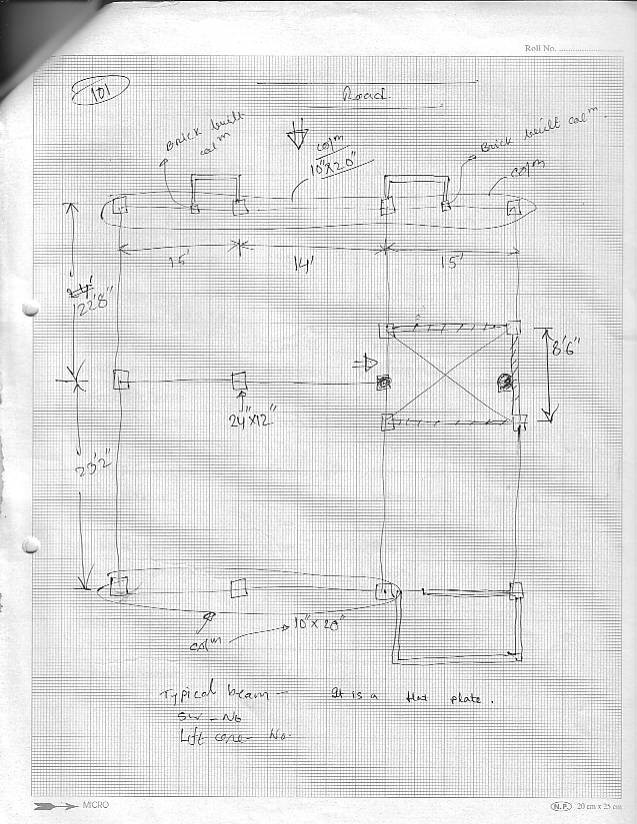 Roll No.
101
Road
Brick built
colm
colm
10"x20"
Brick built colm.
colm
15'
14'
15'
22'8"
8'6"
24"x12"
23'2"
colm
10"x20"
Typical beam - It is a flat plate.
SW - No
Lift core - No.
MICRO
N.P. 20 cm x 25 cm